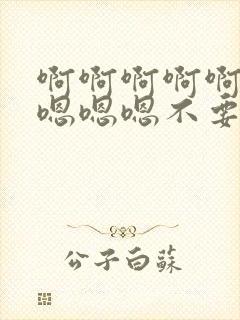 啊啊啊啊啊
嗯嗯嗯不要
公子白蘇